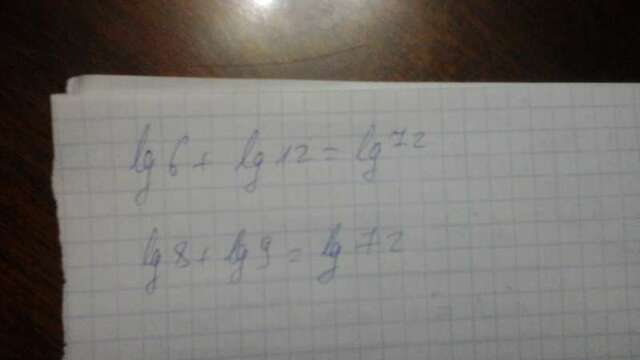 lg 6 + lg 12 = lg 72
lg 8 + lg 9 = lg 72